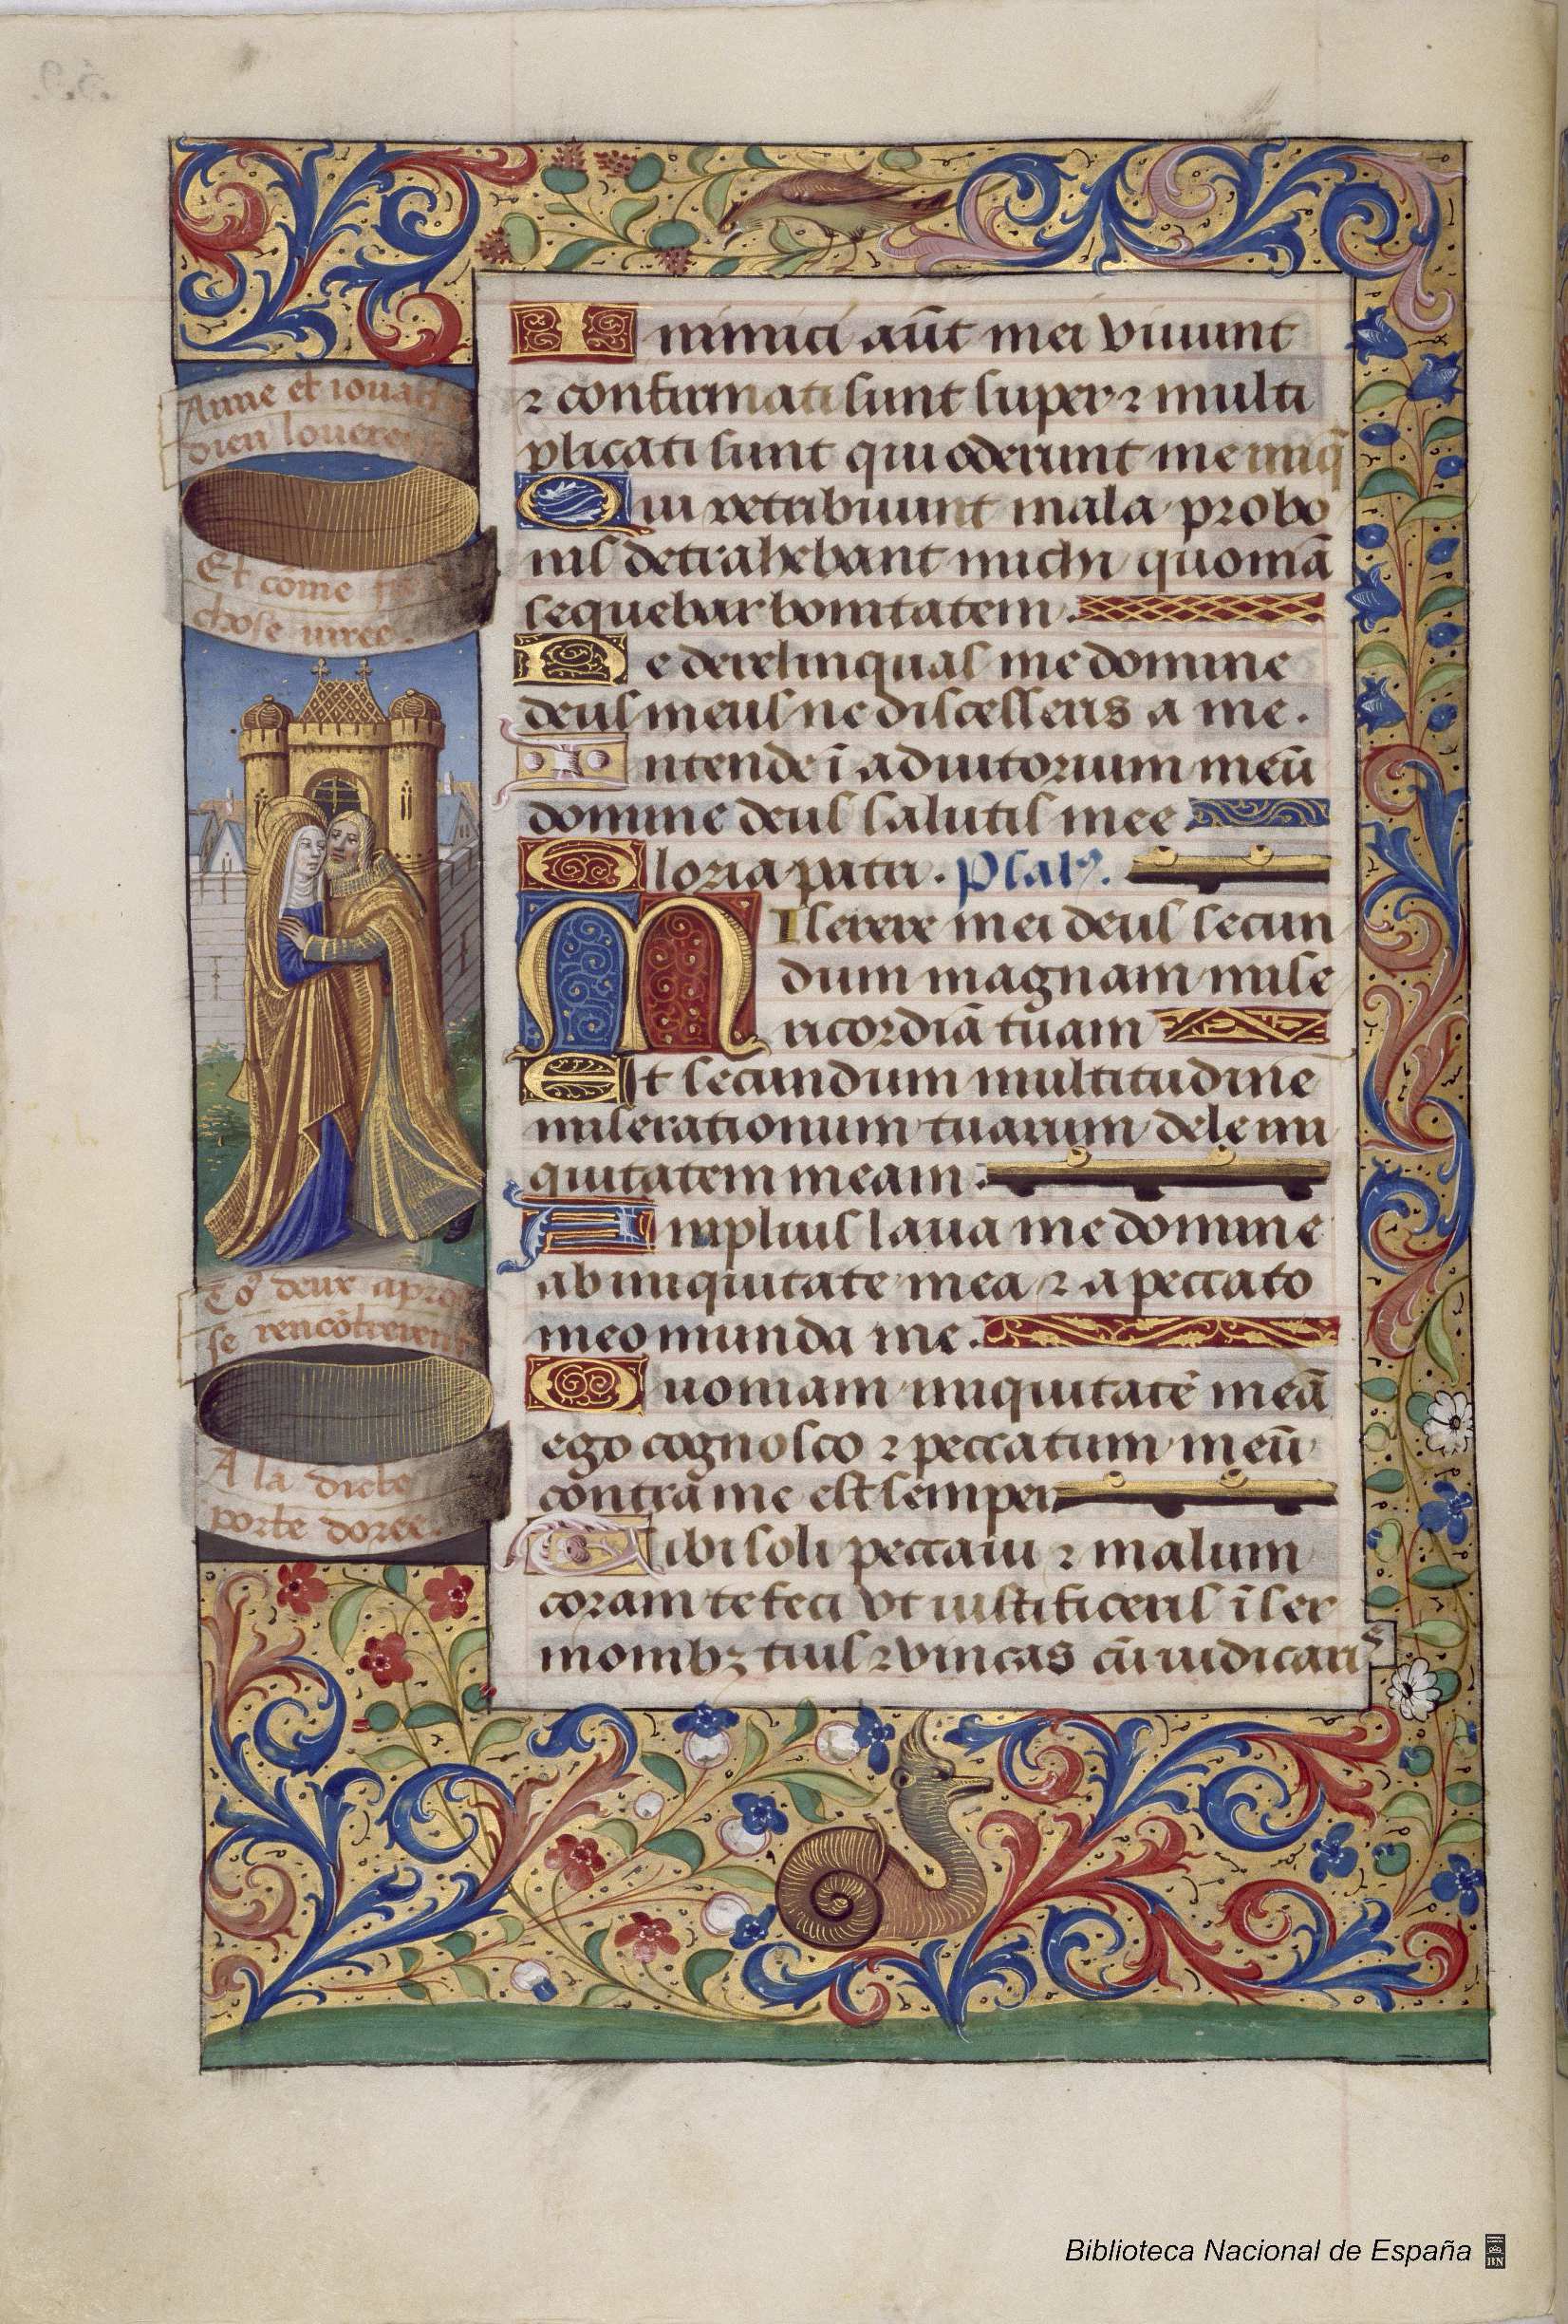 Anne et ioua
dieu louere
Et cōme
chose uiree.
To9 deux apro
se rencōtrerent
A la dicte
porte doree.
Inimici aūt mei viuunt
⁊ confirmati sunt super ⁊ multi
plicati sunt qui oderunt me iniq̄
Qui retribuunt mala pro bo
nis detrahebant michi quoniā
sequebar bonitatem.
Ne derelinquas me domine
deus meus ne discesseris a me.
Intende ī adiutorium meū
domine deus salutis mee
Gloria patri. Psal9.
MIserere mei deus secun
dum magnam mise
ricordiā tuam
Et secundum multitudine
miserationum tuarum dele ini
quitatem meam.
Amplius laua me domine
ab iniquitate mea ⁊ a peccato
meo munda me.
Quoniam iniquitatē meā
ego cognosco ⁊ peccatum meū
contra me est semper
Tibi soli peccaui ⁊ malum
coram te feci vt iustificeris ī ser
monibꝫ tuis ⁊ vincas cū iudicaris
Biblioteca Nacional de España
BN